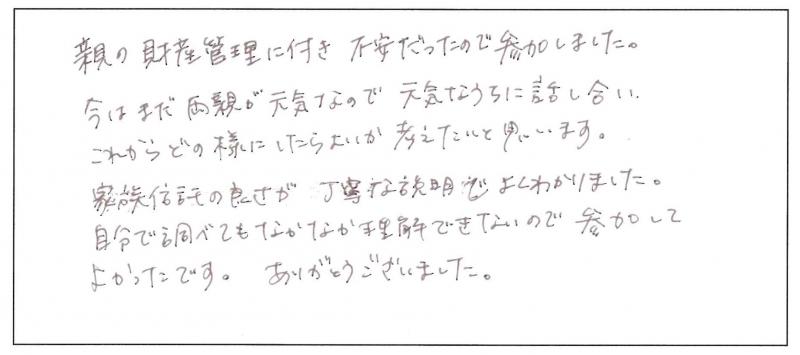 親の財産管理に付き 不安だったので参加しました。
今はまだ両親が元気なので 元気なうちに話し合い
これからどの様にしたらよいか 考えたいと思います。
家族信託の良さが 丁寧な説明でよくわかりました。
自分で調べてもなかなか理解できないので 参加して
よかったです。 ありがとうございました。